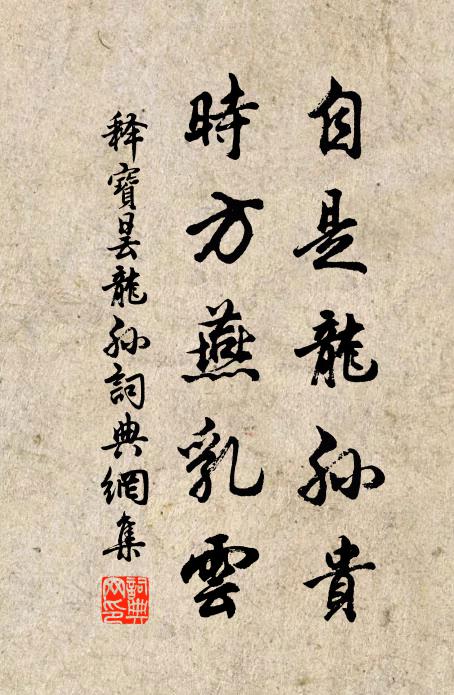 自是龍孫貴
時方燕乳雲
释寶曇龍孙詞典網集
詞典网印